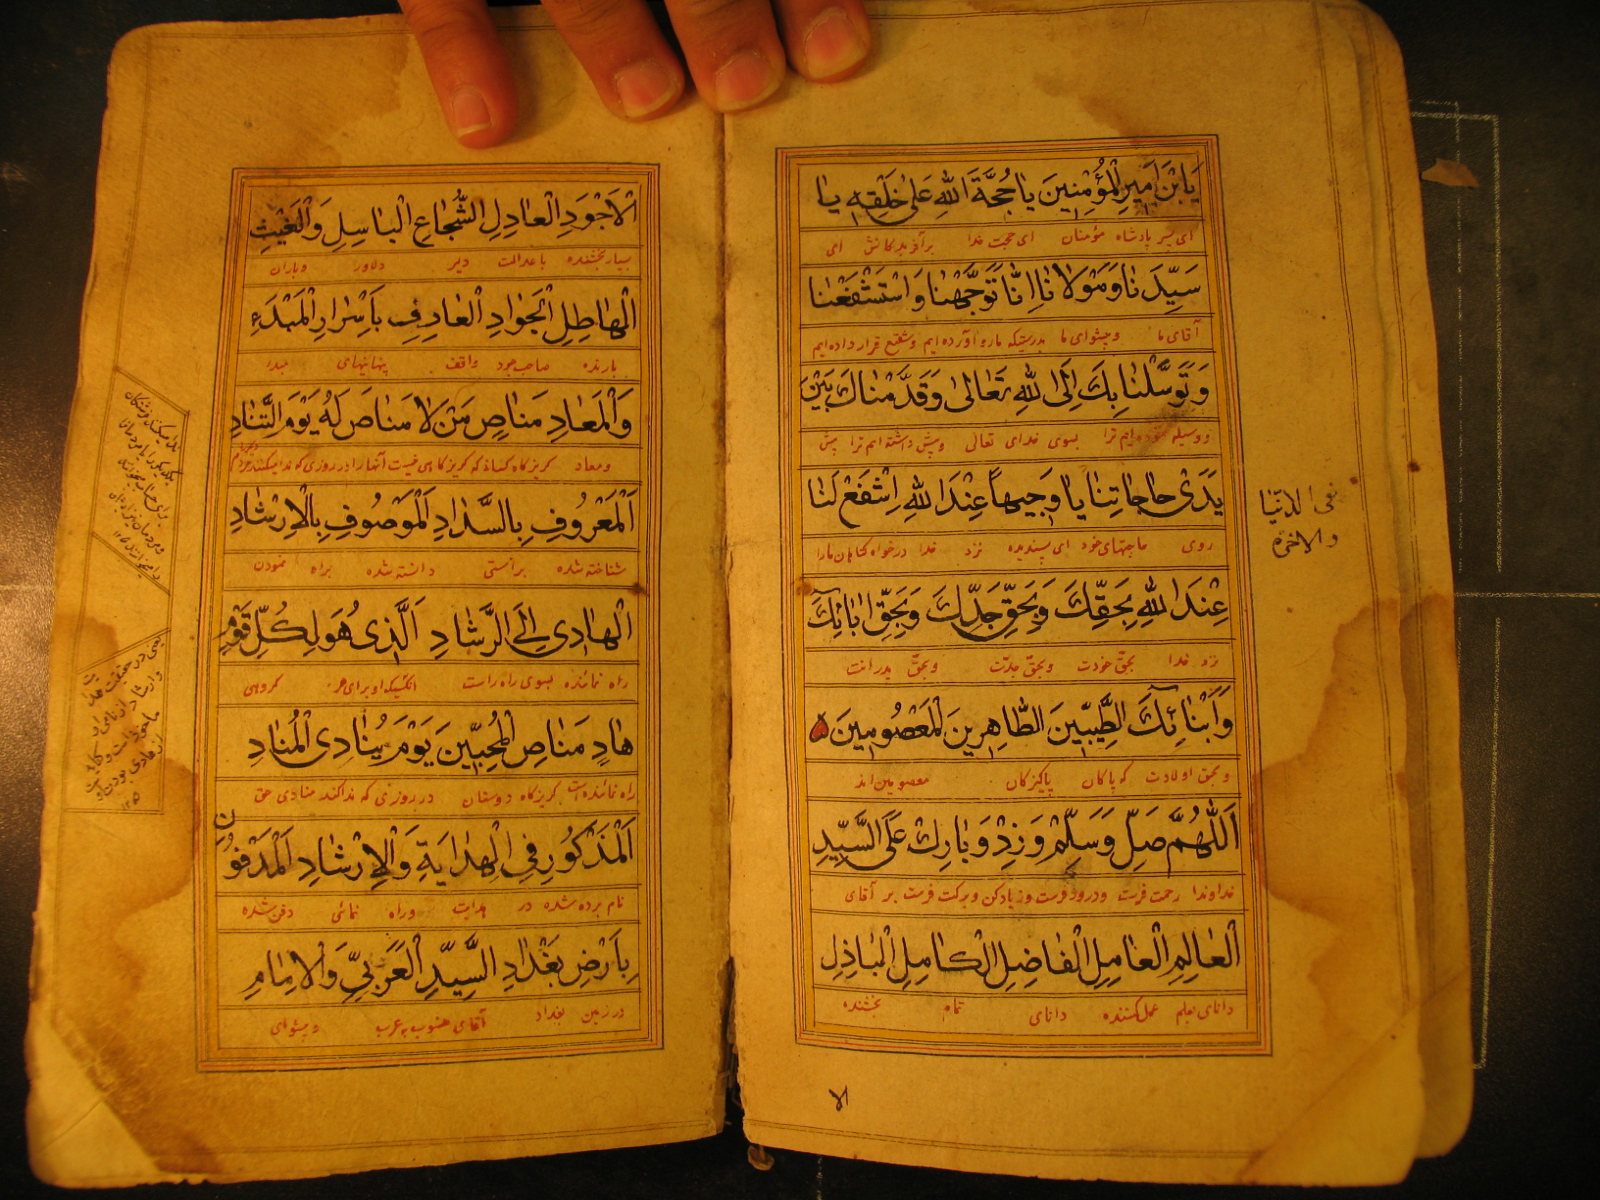 يَابْنَ اَمِيرِ الْمُؤْمِنِينَ يا حُجَّةَ اللهِ عَلىٰ خَلْقِهِ يا
ای پسر پادشاه مؤمنان ای حجت خدا بر آفریدگانش ای
سَيِّدَنا وَمَوْلانا اِنّا تَوَجَّهْنا وَاسْتَشْفَعْنا
آقای ما و پیشوای ما بدرستیکه ما رو آورده ایم و شفیع قرار داده ایم
وَتَوَسَّلْنا بِكَ اِلَى اللهِ تَعالىٰ وَقَدَّمْناكَ بَيْنَ
و وسیله نموده ایم ترا بسوی خدای تعالی و پیش داشته ایم ترا پیش
يَدَىْ حاجاتِنا يا وَجِيهاً عِنْدَ اللهِ اِشْفَعْ لَنا
روی حاجتهای خود ای پسندیده نزد خدا درخواه گناهان مارا
فی الدنیا
والاخرة
عِنْدَ اللهِ بِحَقِّكَ وَبِحَقِّ جَدِّكَ وَبِحَقِّ اٰبائِكَ
نزد خدا بحق خودت و بحق جدت و بحق پدرانت
وَاَبْنائِكَ الطَّيِّبِينَ الطّاهِرِينَ الْمَعْصُومِينَ
و بحق اولادت که پاکان پاکیزگان معصومین اند
اَللّٰهُمَّ صَلِّ وَسَلِّمْ وَزِدْ وَبارِكْ عَلَى السَّيِّدِ
خداوندا رحمت فرست و درود فرست و زیاد کن و برکت فرست بر آقای
الْعالِمِ الْعامِلِ الْفاضِلِ الْكامِلِ الْباذِلِ
دانای بعلم عمل کننده دانای تمام بخشنده
الا
الْاَجْوَدِ الْعادِلِ الشُّجاعِ الْباسِلِ وَالْغَيْثِ
بسیار بخشنده با عدالت دلیر دلاور و باران
الْهاطِلِ الْجَوادِ الْعارِفِ بِاَسْرارِ الْمَبْدَءِ
بارنده صاحب جود واقف پنهانیهای مبدا
وَالْمَعادِ مَناصِ مَنْ لا مَناصَ لَهُ يَوْمَ التَّنادِ
و معاد گریزگاه کسانیکه گریزگاهی نیست آنها را در روزی که ندا میکنند مردم
اَلْمَعْرُوفِ بِالسَّدادِ اَلْمَوْصُوفِ بِالْاِرْشادِ
شناخته شده براستی داشته شده براه نمودن
الْهادِي اِلَى الرَّشادِ اَلَّذِى هُوَ لِكُلِّ قَوْمٍ
راه نماینده بسوی راه راست آنکسیکه او برای هر گروهی
هادٍ مَناصِ الْمُحِبِّينَ يَوْمَ يُنادِى الْمُنادِ
راه نماینده است گریزگاه دوستان در روزی که ندا کند منادی حق
اَلْمَذْكُورِ فِي الْهِدايَةِ وَالْاِرْشادِ اَلْمَدْفُونِ
نام برده شده در هدایت و راه نمائی دفن شده
بِاَرْضِ بَغْدادِ السَّيِّدِ الْعَرَبِيِّ وَالْاِمامِ
در زمین بغداد آقای منسوب به عرب و پیشوای